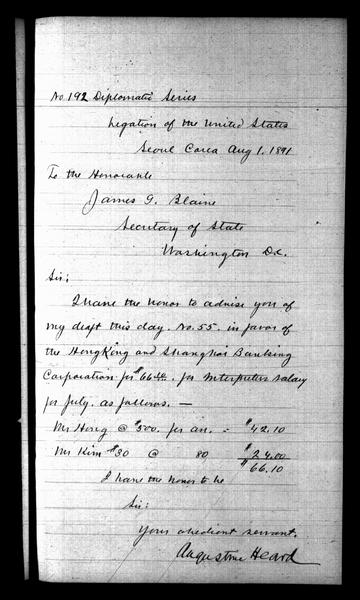 No. 192 Diplomatic Series
Legation of the United States
Seoul Corea Aug 1. 1891
To the Honorable
James G. Blaine
Secretary of State
Washington D.C.
Sir;
I have the honor to advise you of
my draft this day. No. 55. in favor of
the HongKong and Shanghai Banking
Corporation for $66.10. for Interpreters salary
for July. as follows. —
Mr Hong @ $500. per an. = $42.10
Mr Kim $30 @ 80 $24.00
$66.10
I have the honor to be
Sir:
Your obedient servant.
Augustine Heard